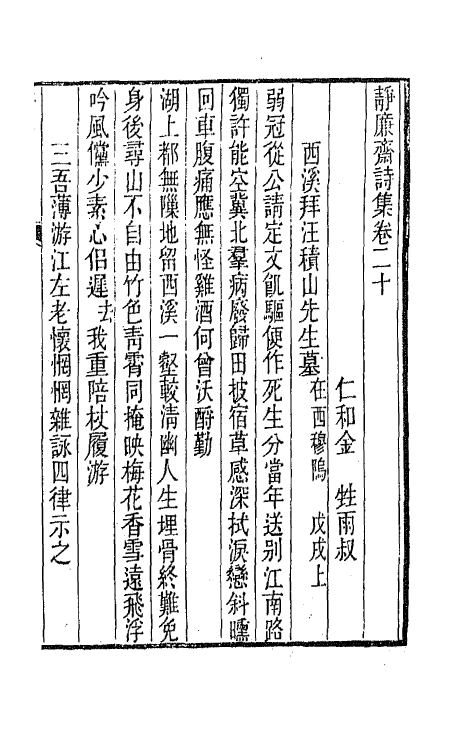 靜廉齋詩集卷二十
仁和金　甡雨叔
西溪拜汪積山先生墓在西穆隖　戊戌上
弱冠從公請定文飢驅便作死生分當年送別江南路
獨許能空冀北羣病廢歸田披宿草感深拭淚戀斜曛
回車腹痛應無怪雞酒何曾沃酹勤
湖上都無隙地留西溪一壑較清幽人生埋骨終難免
身後尋山不自由竹色靑霄同掩映梅花香雪遠飛浮
吟風儻少素心侶遲去我重陪杖履游
三吾薄游江左老懷惘惘雜詠四律示之